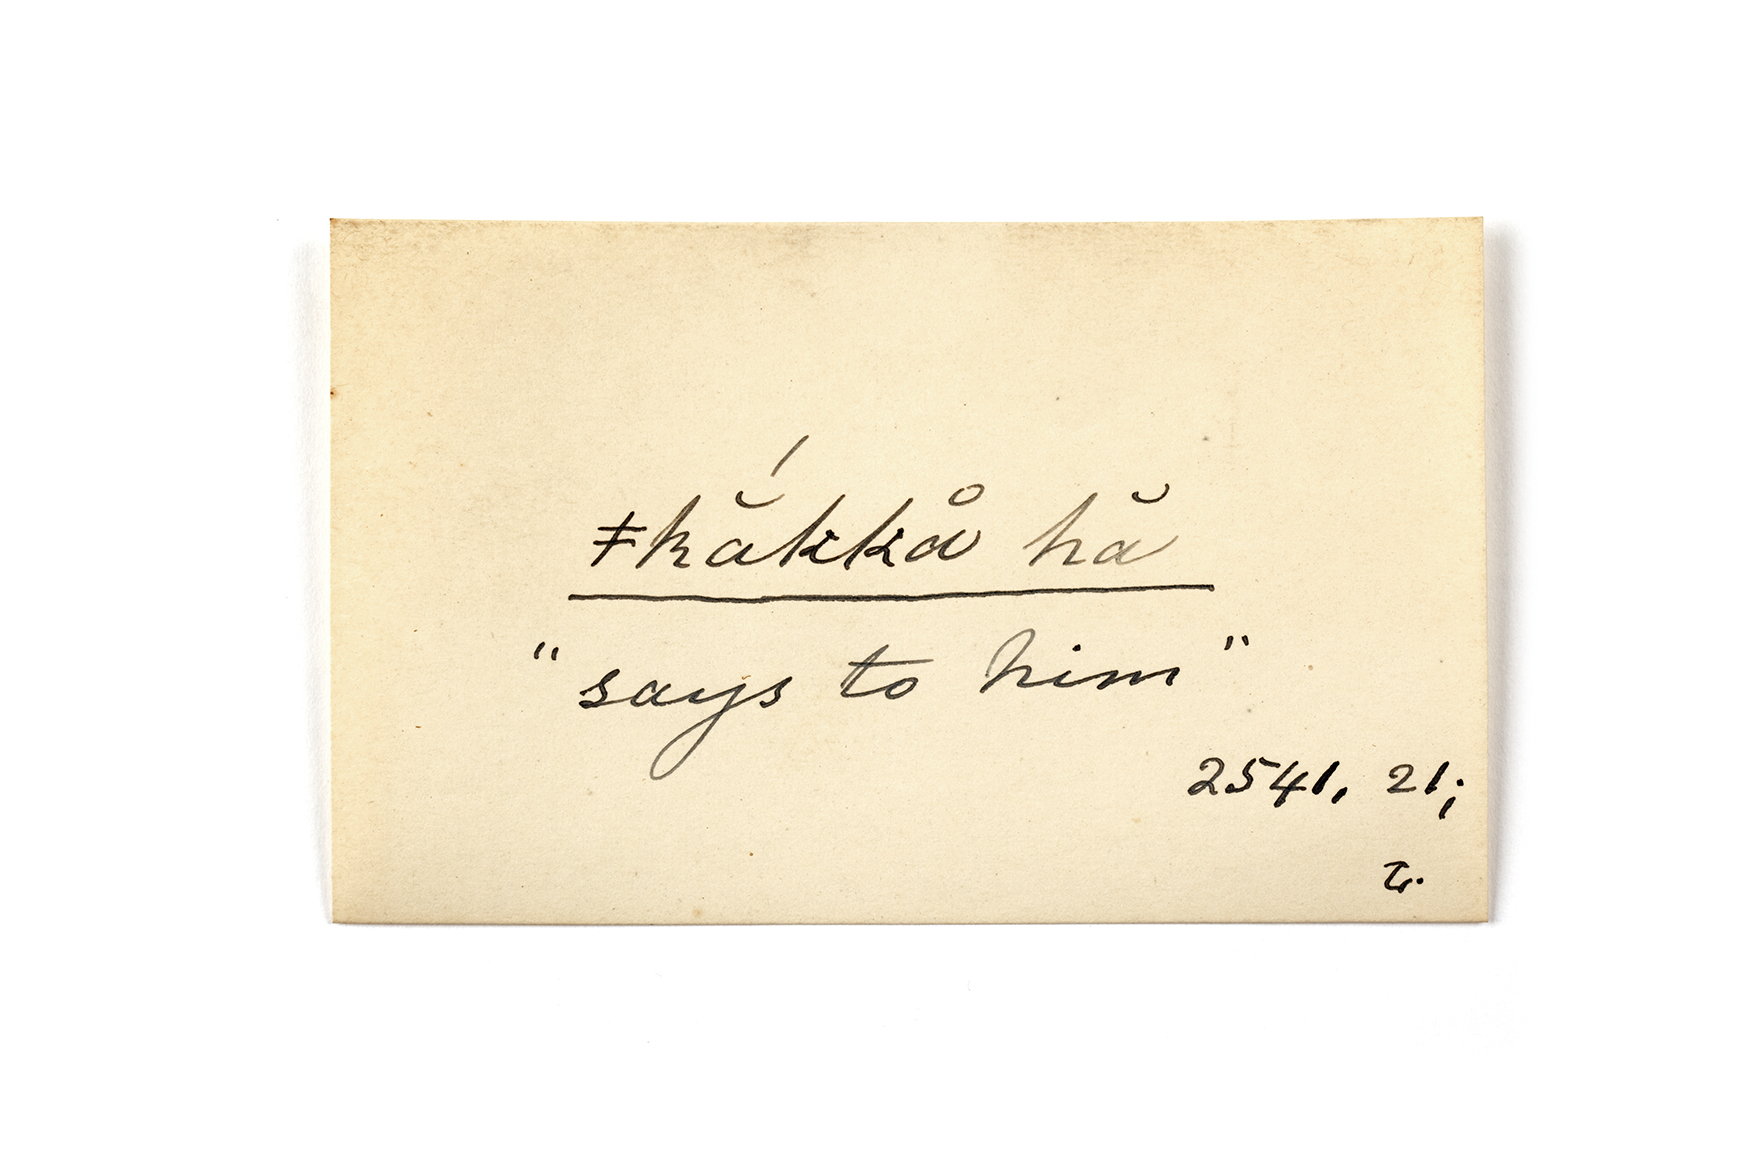 ǂkắkkå hă
"says to him"
2541, 21;